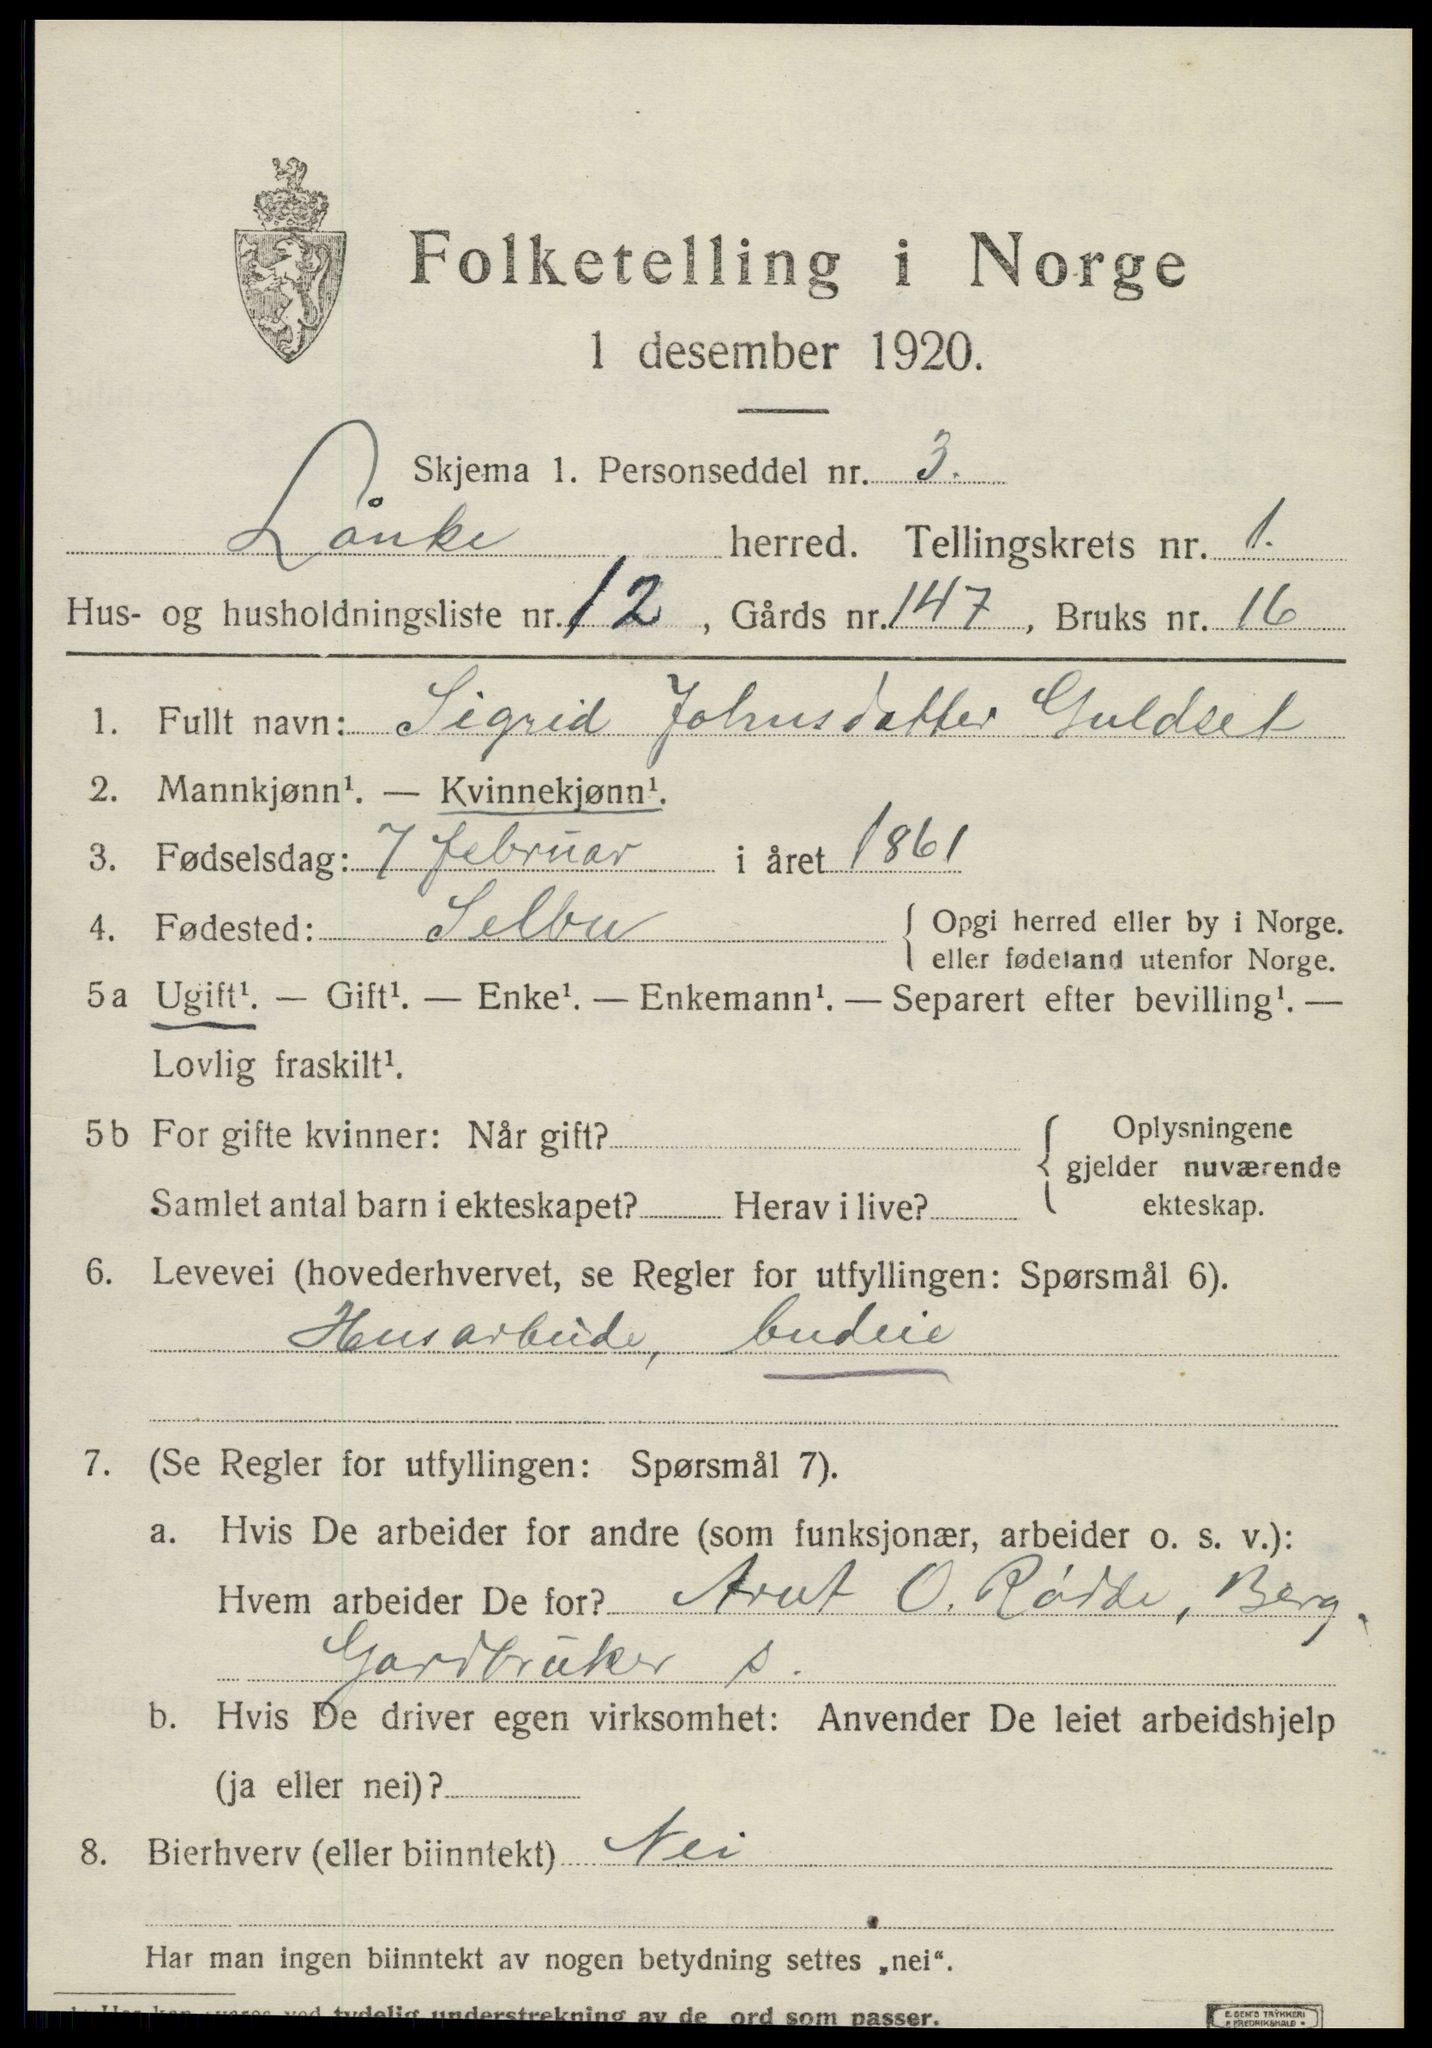 Folketelling i Norge
1 desember 1920.
Skjema 1. Personseddel nr. 3.
Lånke herred. Tellingskrets nr. 1.
Hus- og husholdningsliste nr. 12, Gårds nr. 147, Bruks nr. 16
1. Fullt navn: Sigrid Johnsdatter Guldset
2. Mannkjønn¹. — Kvinnekjønn¹.
3. Fødselsdag: 7 februar i året 1861
4. Fødested: Selbu { Opgi herred eller by i Norge.
eller fødeland utenfor Norge.
5a Ugift¹. — Gift¹. — Enke¹. — Enkemann¹. — Separert efter bevilling¹. —
Lovlig fraskilt¹.
5b For gifte kvinner: Når gift? { Oplysningene
gjelder nuværende
Samlet antal barn i ekteskapet? Herav i live? ekteskap.
6. Levevei (hovederhvervet, se Regler for utfyllingen: Spørsmål 6).
Husarbeide, budeie
7. (Se Regler for utfyllingen: Spørsmål 7).
a. Hvis De arbeider for andre (som funksjonær, arbeider o. s. v.):
Hvem arbeider De for? Arnt O. Rødde, Berg,
Gardbruker s.
b. Hvis De driver egen virksomhet: Anvender De leiet arbeidshjelp
(ja eller nei)?
8. Bierhverv (eller biinntekt) Nei
Har man ingen biinntekt av nogen betydning settes „nei“.
tydelig understrekning av de ord som passer.